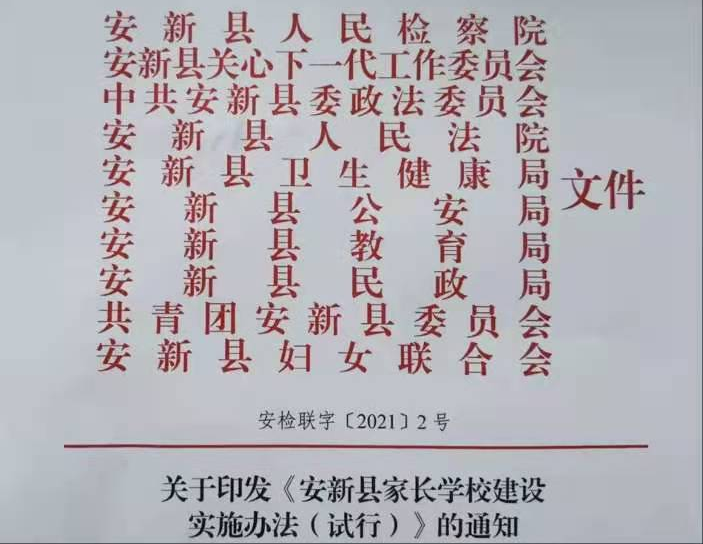 安新县人民检察院
安新县关心下一代工作委员会
中共安新县委政法委员会
安新县人民法院
安新县卫生健康局
文件
安新县公安局
安新县教育局
安新县民政局
共青团安新县委员会
安新县妇女联合会
安检联字〔2021〕2号
关于印发《安新县家长学校建设
实施办法（试行）》的通知